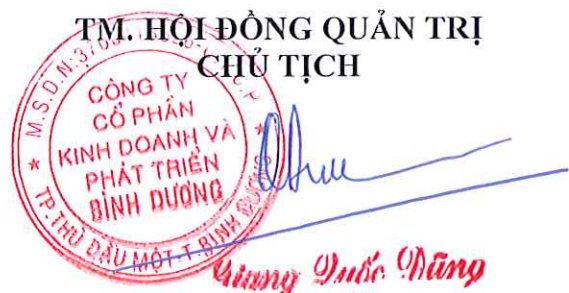 TM. HỘI ĐỒNG QUẢN TRỊ
CHỦ TỊCH
M.S.D.N:3700
C.P
CÔNG TY
CỔ PHẦN
KINH DOANH VÀ
PHÁT TRIỂN
BÌNH DƯƠNG
TP.THỦ DẦU MỘT-T.BÌNH DƯƠNG
Giang Quốc Dũng